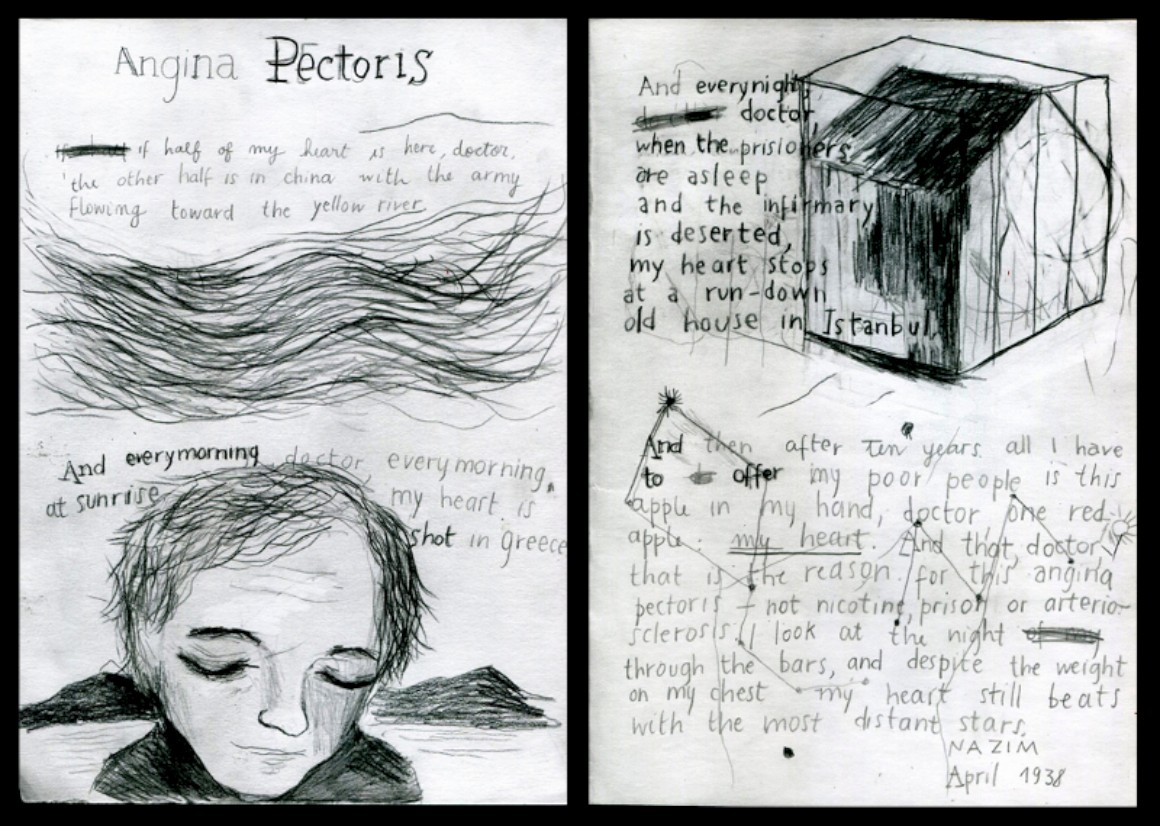 Angina Pectoris
if half of my heart is here, doctor,
the other half is in china with the army
flowing toward the yellow river
And everymorning doctor, every morning,
at sunrise my heart is
shot in greece
And everynight,
doctor,
when the prisioners
are asleep
and the infirmary
is deserted,
my heart stops
at a run-down
old house in Istanbul.
And then after Ten years all I have
to offer my poor people is this
apple in my hand, doctor one red
apple: my heart. And that, doctor
that is the reason for this angina
pectoris - not nicotine, prison or arterio-
sclerosis. I look at the night
through the bars, and despite the weight
on my chest my heart still beats
with the most distant stars.
NAZIM
April 1938